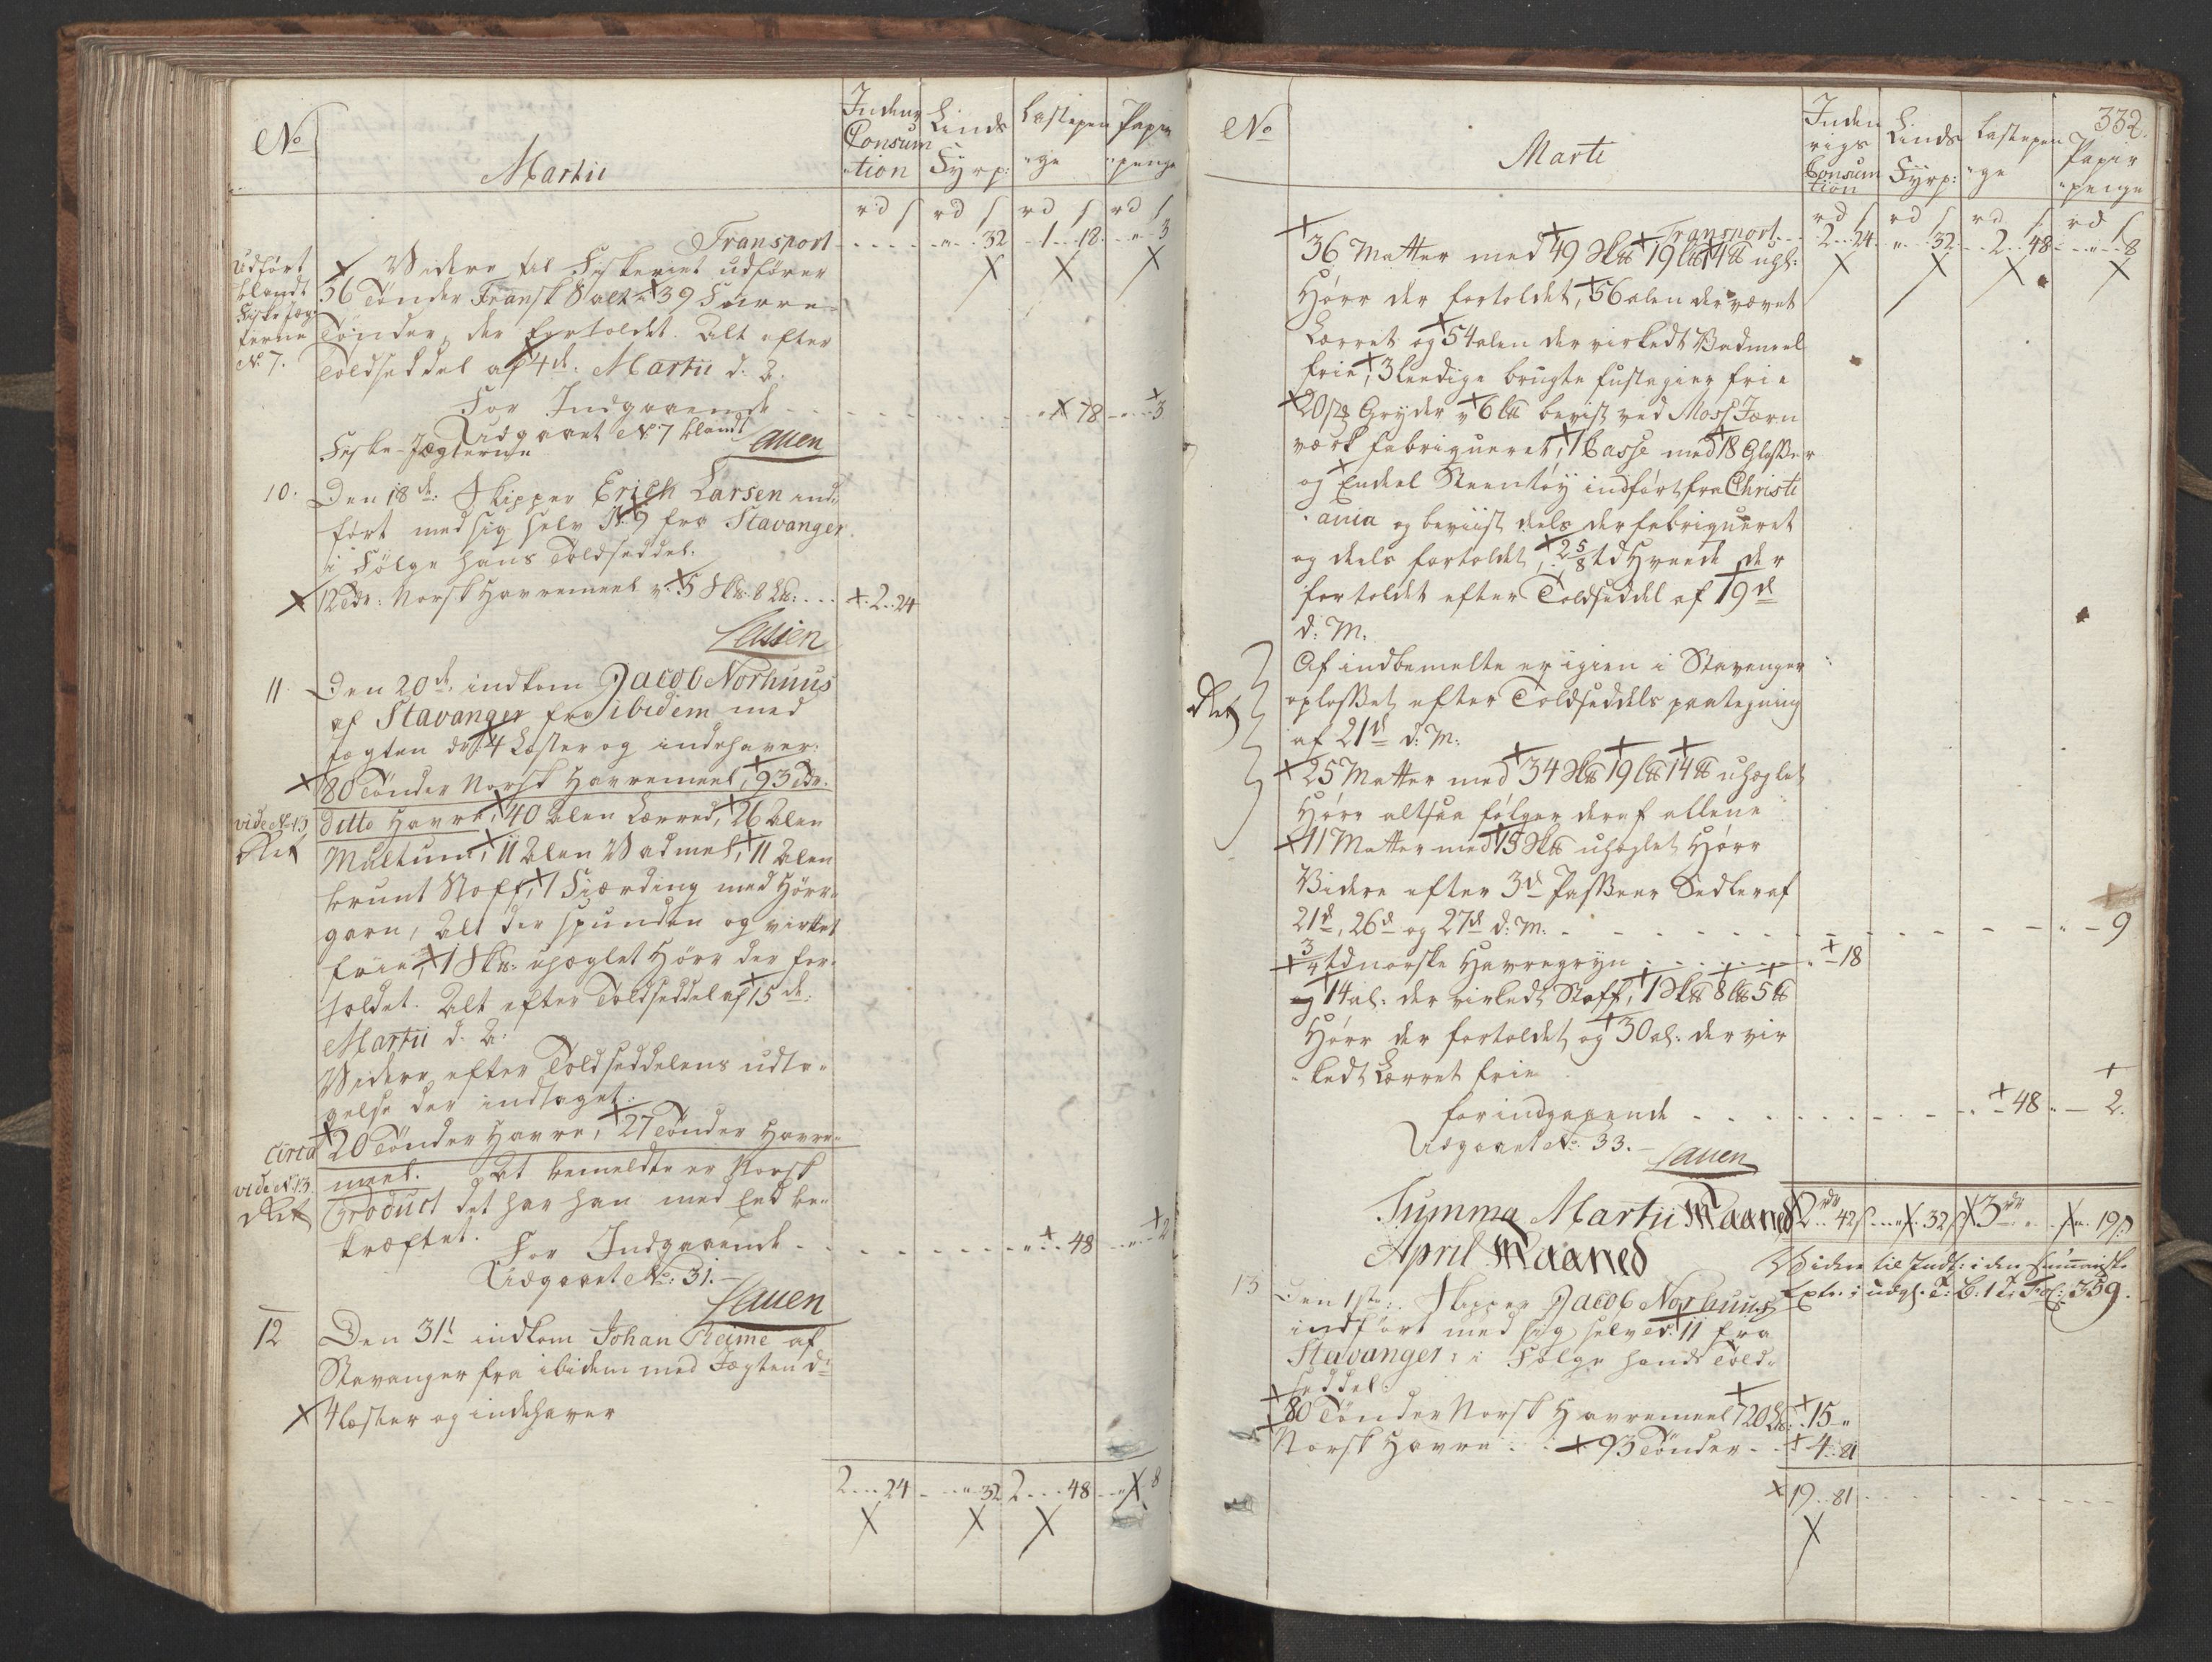 No
Martii
Indenr
Consum
tion
Linds
Fyrp:
Lastepen
ge
Papir
penge
rd s rd s rd s rd s
Transport - - - - „ 32 - 1 - 18 - „ 3
Udført
blandt
Fiske Jæg
terne
N. 7.
Widere til Fiskeriet udfører
36 Tønder Fransk Salt, 39 Furre
Tønder, der fortoldet. Alt efter
Toldseddel af 4de Martii d. A.
For Indgaaende - - - 78 - - 3
Udgaaet N 7 blandt
Fiske-Jægterne
Lauen
10. Den 18de: Skipper Erich Larsen ind
ført med sig selv N. 9 fra Stavanger
i Følge hans Toldseddel.
12 Tdr: Norsk Havremeel v. 5 Sk: 8 L: . . . 2 . . 24
Lauen
11. Den 20de indkom Jacob Norhuus
af Stavanger fra ibidem med
Jagten dr: 4 Læster og indehaver:
80 Tønder Norsk Havremeel, 93 Tdr.
vide No 13
ditto Havre, 40 Alen Lærred, 26 Alen
Multum, 11 Alen Wadmel, 11 Alen
brunt Stoff, 1 Fiærding med Hørr-
garn, Alt der spunden og virket
frie, 1 Sk: uheglet Hørr der for-
toldet. Alt efter Toldseddel af 15de:
Martii d. A:
Widere efter Toldseddelens udta-
gelse der indtaget:
circa 20 Tønder Havre, 27 Tønder Havre-
vide N. 13.
meel. At bemeldte er Norsk
Product det har han med Eed be-
kræftet.
For Indgaaende - - - - - - „ 48 - „ 2
Udgaaet No: 31.
Lauen
12 Den 31t indkom Johan Reime af
Stavanger fra ibidem med Jægten dr
4 læster og indehaver
2 . . . 24 - - „ 32 2 . . . 48 - - „ 8
332.
No
Marti
Inden
rigs
Consum
tion
Linds
Fyrp:
Lastepen
ge
Papir
penge
rd s rd s rd s rd s
Transport - - 2 . . 24 . „ . . 32 . . 2 . . 48 . . „ . . 8
36 Matter med 49 Sk 19 L 14 uhgl:
Hørr der fortoldet, 56 alen der vævet
Lærret og 54 alen der virkedt Vadmeel
frie, 3 leedige brugte fustagier frie
20 st Gryder v 6 L bevist ved Moss Jærn
værk fabriqueret, 1 Casse med 18 Glasser
og Endeel Steentøy indført fra Christi
ania og beviist deels der fabriqueret
og deels fortoldet, 2 5/8 td Hveede der
fortoldet efter Toldseddel af 19d
d: M:
Af indbemelte er igien i Stavanger
oplosset efter Toldseddels paategning
af 21d d: M:
25 Matter med 34 Sk 19 L 14 uheglet
Hørr altsaa følger deraf allene
11 Matter med 15 Sk uheglet Hørr
Videre efter 3d Passeer Sedler af
21d, 26d og 27d d: M: - - - - - - - - - „ - 9
3/4 td norske Havregryn . . . . . . „ 18
og 14 al: der virkedt Stoff, 1 Sk 8 L 5
Hørr der fortoldet og 30 al: der vir
kedt Lærret frie
for indgaaende - - - - - - - - „ 48 „ - 2.
Udgaaet No: 33.
Lauen
Summa Martii Maaned 2 rdr 42 s - - „ 32 s 3 rdr „ - „ 19 s
April Maaned
Videre til Indt: i den summariske
Extr: i udgl. T: C: 1 T: Fol: 359.
13 Den 1ste: Skipper Jacob Norhuus
indført med sig selv No. 11 fra
Stavanger: i Følge hands Told-
seddel:
80 Tønder Norsk Havremeel 720 L: . 15 „
Norsk Havre . . . 93 Tønder - - 4 . 81
19 . . 81 - - - - - - - -